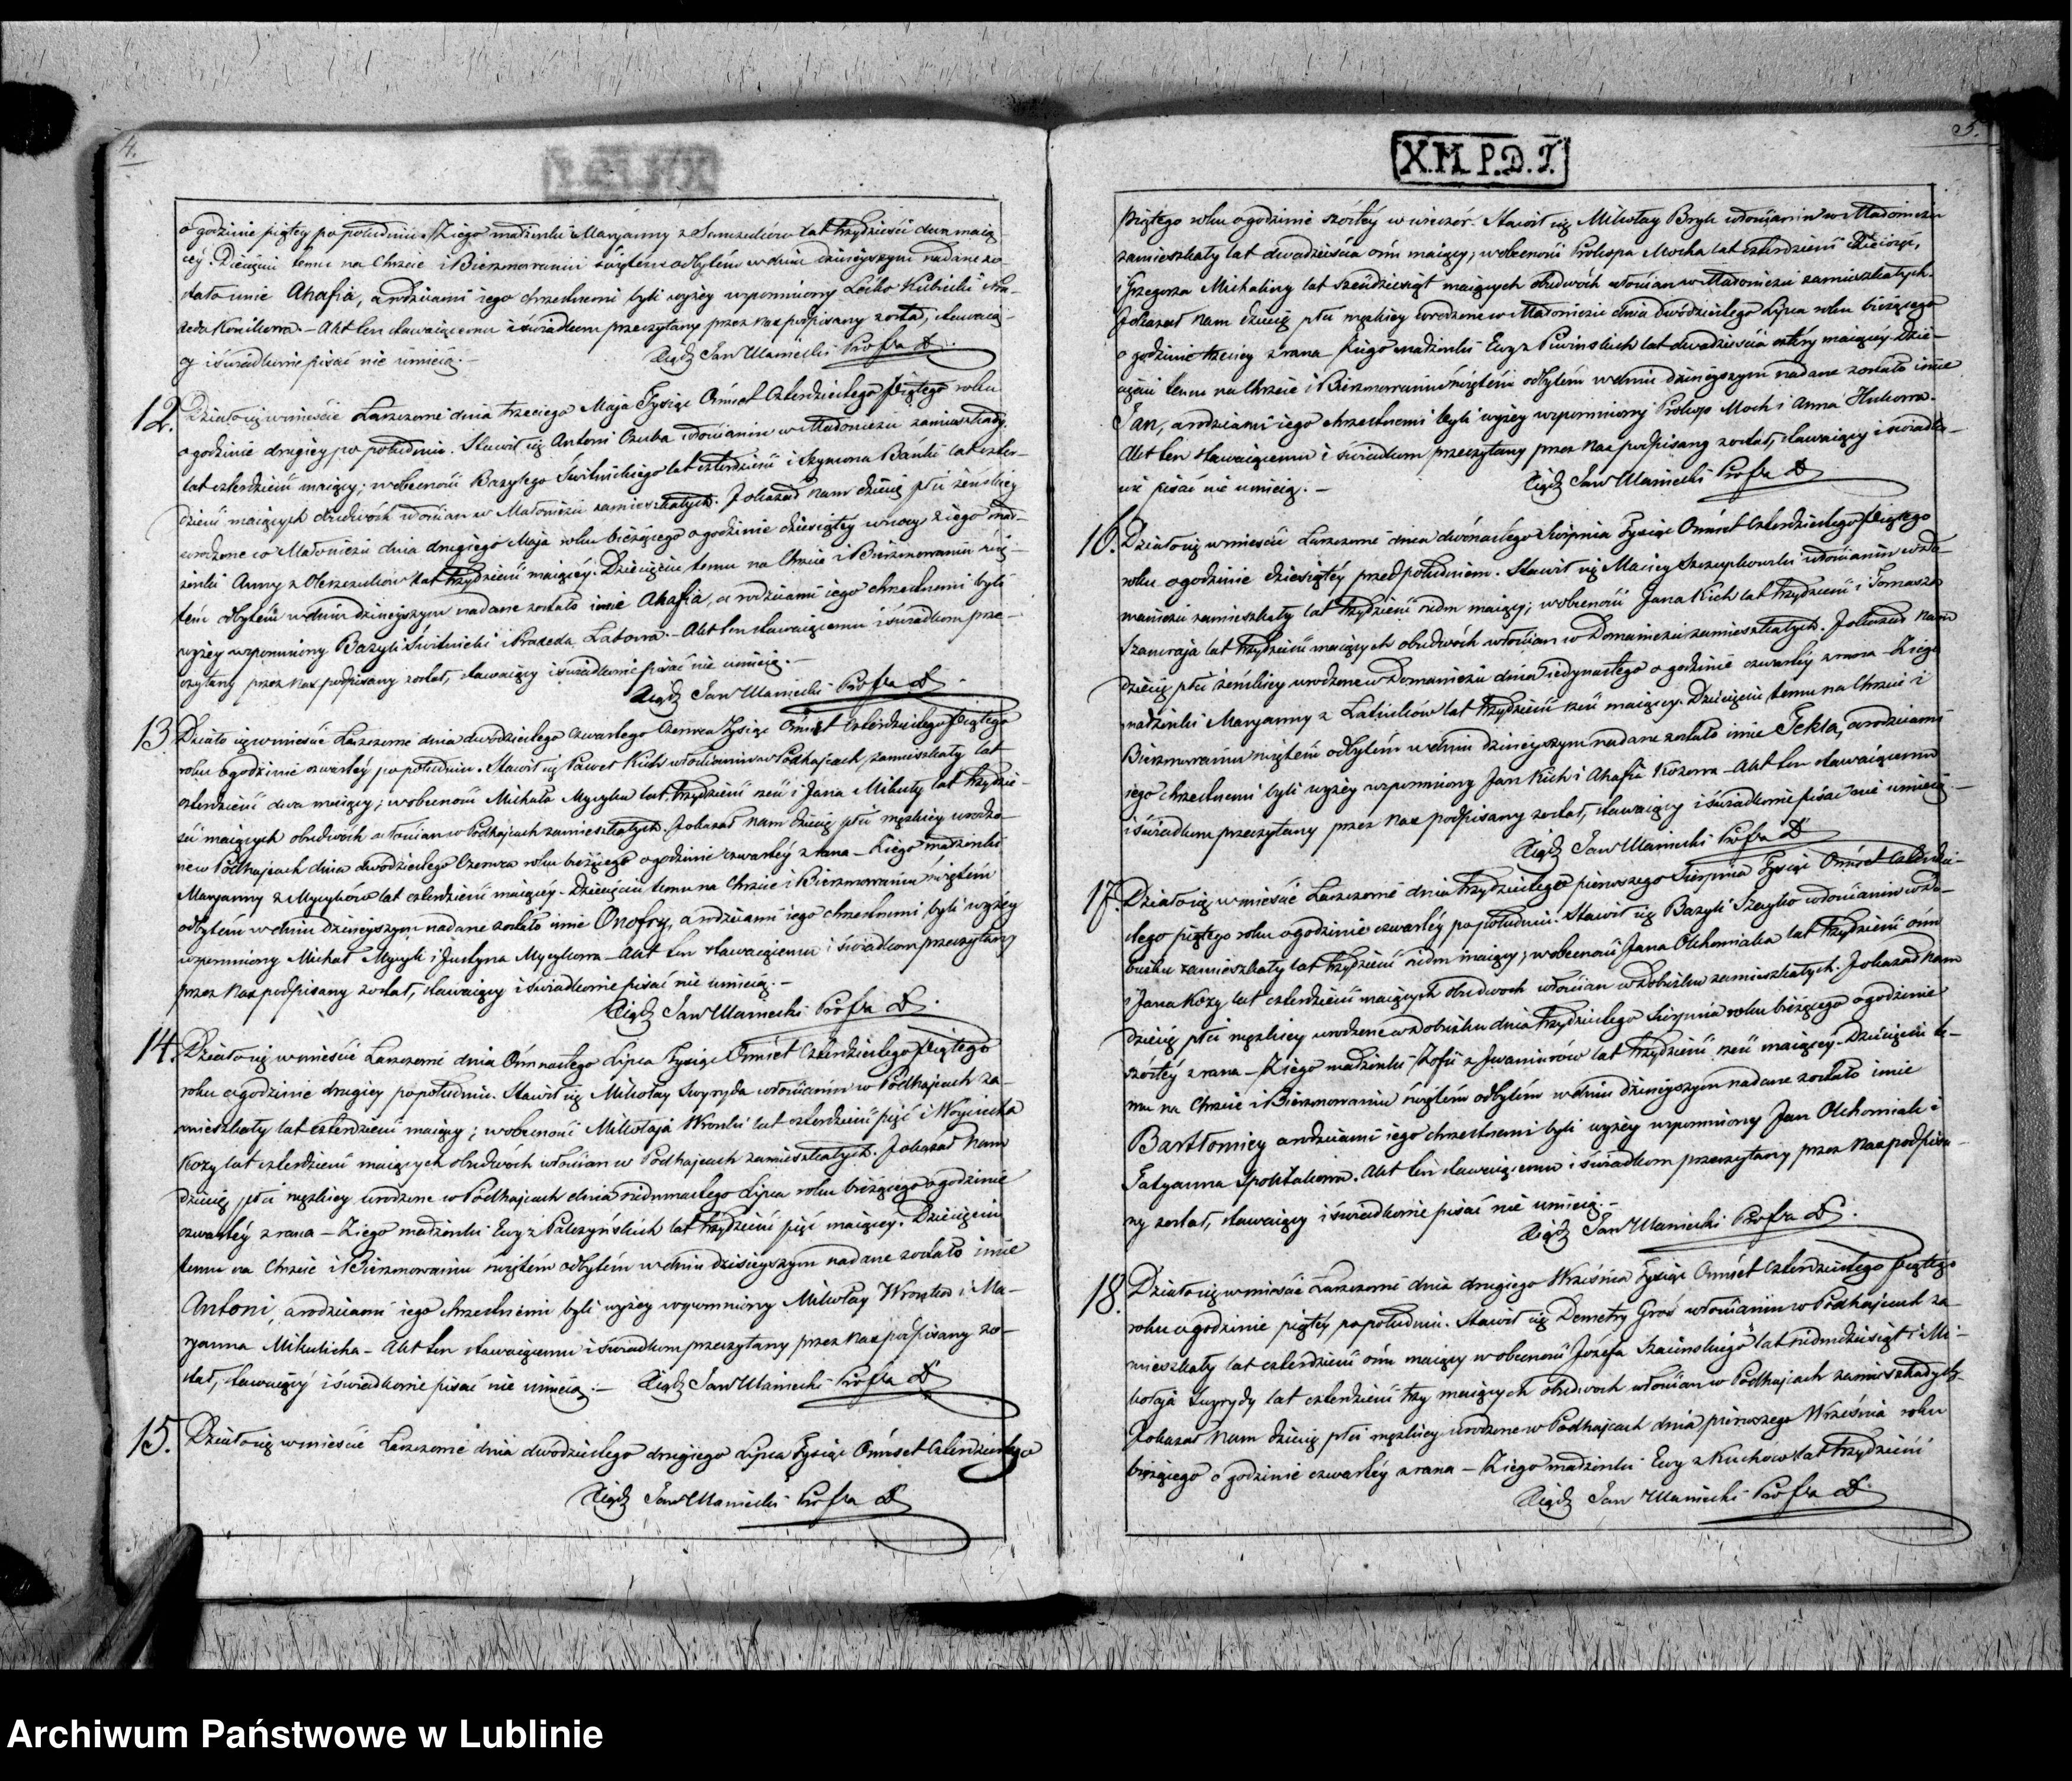 4.
o godzinie piątey po południu. Z iego małżonki Maryanny z Semeniuków lat trzydzieści dwa maią-
cey. Dziecięciu temu na Chrzcie i Bierzmowaniu świętem odbytem w dniu dzisieyszym nadane zo-
stało imie Ahafia, a rodzicami iego chrzestnemi byli wyżey wspomniony Leśko Kubicki i Pra-
xeda Konikowa. – Akt ten stawaiącemu i świadkom przeczytany przez Nas podpisany został, stawaią-
cy i świadkowie pisać nie umieią. –
Xiądz Jan Ulanicki
12. Działo się w mieście Łaszczowie dnia trzeciego Maja Tysiąc Ośmset Czterdziestego Piątego roku
o godzinie drugiey po południu. Stawił się Antoni Czuba włościanin w Małoniżu zamieszkały
lat czterdzieści maiący; w obecności Bazylego Świtnickiego lat czterdzieści i Szymona Bańki lat czter-
dzieści maiących obudwóch włościan w Małoniżu zamieszkałych. I okazał nam dziecię płci żeńskiey
urodzone w Małoniżu dnia drugiego Maja roku bieżącego o godzinie dziesiątey w nocy z iego mał-
żonki Anny z Oleszczuków lat trzydzieści maiącey. Dziecięciu temu na Chrzcie i Bierzmowaniu świę-
tem odbytem w dniu dzisieyszym nadane zostało imie Ahafia, a rodzicami iego chrzestnemi byli
wyżey wspomniony Bazyli Świtnicki i Praxeda Łabowa. – Akt ten stawaiącemu i świadkom prze-
czytany przez Nas podpisany został, stawaiący i świadkowie pisać nie umieią. –
Xiądz Jan Ulanicki
13. Działo się w mieście Łaszczowie dnia dwudziestego czwartego Czerwca Tysiąc Ośmset Czterdziestego Piątego
roku o godzinie czwartey po południu. Stawił się Paweł Kich włościanin w Podhajcach zamieszkały lat
czterdzieści dwa maiący; w obecności Michała Mycyka lat trzydzieści sześć i Jana Mikuły lat trzydzie-
ści maiących obudwóch włościan w Podhajcach zamieszkałych. I okazał nam dziecię płci męzkiey urodzo-
ne w Podhajcach dnia dwudziestego Czerwca roku bieżącego o godzinie czwartey z rana – Z iego małżonki
Maryanny z Mycyków lat czterdzieści maiącey. Dziecięciu temu na Chrzcie i Bierzmowaniu świętem
odbytem w dniu dzisieyszym nadane zostało imie Onofry, a rodzicami iego chrzestnemi byli wyżey
wspomniony Michał Mycyk i Justyna Mycykowa – Akt ten stawaiącemu i świadkom przeczytany
przez Nas podpisany został, stawaiący i świadkowie pisać nie umieią. –
Xiądz Jan Ulanicki
14. Działo się w mieście Łaszczowie dnia Ośmnastego Lipca Tysiąc Ośmset Czterdziestego Piątego
roku o godzinie drugiey po południu. Stawił się Mikołay Swyryda włościanin w Podhajcach za-
mieszkały lat czterdzieści maiący; w obecności Mikołaja Wronki lat czterdzieści pięć i Woyciecha
Kozy lat czterdzieści maiących obudwóch włościan w Podhajcach zamieszkałych. I okazał nam
dziecię płci męzkiey urodzone w Podhajcach dnia siedmnastego Lipca roku bieżącego o godzinie
czwartey z rana – Z iego małżonki Ewy z Palczyńskich lat trzydzieści pięć maiącey. Dziecięciu
temu na Chrzcie i Bierzmowaniu świętem odbytem w dniu dzisieyszym nadane zostało imie
Antoni, a rodzicami iego chrzestnemi byli wyżey wspomniony Mikołay Wronka i Ma-
ryanna Mikulicha – Akt ten stawaiącemu i świadkom przeczytany przez Nas podpisany zo-
stał, stawaiący i świadkowie pisać nie umieią. – Xiądz Jan Ulanicki
15. Działo się w mieście Łaszczowie dnia dwudziestego drugiego Lipca Tysiąc Ośmset Czterdziestego
Xiądz Jan Ulanicki
5.
X.M.P.D.T.
Piątego roku o godzinie szostey w wieczór. Stawił się Mikołay Bryk włościanin w Małoniżu
zamieszkały lat dwadzieścia ośm maiący; w obecności Prokopa Mocha lat czterdzieści dziewięć,
i Grzegorza Michaliny lat sześćdziesiąt maiących obudwóch włościan w Małoniżu zamieszkałych.
I okazał nam dziecię płci męzkiey urodzone w Małoniżu dnia dwudziestego Lipca roku bieżącego
o godzinie trzeciey z rana – Z iego małżonki Ewy z Piwinskich lat dwadzieścia cztery maiącey. Dzie-
cięciu temu na Chrzcie i Bierzmowaniu świętem odbytem w dniu dzisieyszym nadane zostało imie
Jan, a rodzicami iego chrzestnemi byli wyżey wspomniony Prokop Moch i Anna Hukowa.
Akt ten stawaiącemu i świadkom przeczytany przez Nas podpisany został, stawaiący i świadko-
wie pisać nie umieią. –
Xiądz Jan Ulanicki
16. Działo się w mieście Łaszczowie dnia dwónastego Sierpnia Tysiąc Ośmset Czterdziestego Piątego
roku o godzinie dziesiątey przed południem. Stawił się Maciey Szczupkowski włościanin w Do-
maniżu zamieszkały lat trzydzieści siedm maiący; w obecności Jana Kich lat trzydzieści i Tomasza
Szawraja lat trzydzieści maiących obudwóch włościan w Domaniżu zamieszkałych. I okazał nam
dziecię płci żeńskiey urodzone w Domaniżu dnia iedynastego o godzinie czwartey z rana – Z iego
małżonki Maryanny z Łatuików lat trzydzieści sześć maiącey. Dziecięciu temu na Chrzcie i
Bierzmowaniu świętem odbytem w dniu dzisieyszym nadane zostało imie Tekla, a rodzicami
iego chrzestnemi byli wyżey wspomniony Jan Kich i Ahafia Kozowa – Akt ten stawaiącemu
i świadkom przeczytany przez Nas podpisany został, stawaiący i świadkowie pisać nie umieią. –
Xiądz Jan Ulanicki
17. Działo się w mieście Łaszczowie dnia trzydziestego pierwszego Sierpnia Tysiąc Ośmset Czterdzie-
stego piątego roku o godzinie czwartey po południu. Stawił się Bazyli Szayko włościanin w Do-
bużku zamieszkały lat trzydzieści siedm maiący; w obecności Jana Olchomiaka lat trzydzieści ośm
i Jana Kozy lat czterdzieści maiących obudwóch włościan w Dobużku zamieszkałych. I okazał nam
dziecię płci męzkiey urodzone w Dobużku dnia trzydziestego Sierpnia roku bieżącego o godzinie
szóstey z rana – Z iego małżonki Zofii z Iwaniurów lat trzydzieści sześć maiącey. Dziecięciu te-
mu na Chrzcie i Bierzmowaniu świętem odbytem w dniu dzisieyszym nadane zostało imie
Bartłomiey a rodzicami iego chrzestnemi byli wyżey wspomniony Jan Olchomiak i
Tatyanna Spoktakowa. Akt ten stawaiącemu i świadkom przeczytany przez Nas podpisa-
ny został, stawaiący i świadkowie pisać nie umieią. –
Xiądz Jan Ulanicki
18. Działo się w mieście Łaszczowie dnia drugiego Września Tysiąc Ośmset Czterdziestego piątego
roku o godzinie piątey po południu. Stawił się Demetry Groś włościanin w Podhajcach za-
mieszkały lat czterdzieści ośm maiący w obecności Józefa Szaienskiego lat siedmdziesiąt i Mi-
kołaja Swyrydy lat czterdzieści trzy maiących obudwóch włościan w Podhajcach zamieszkałych.
I okazał Nam dziecię płci męzkiey urodzone w Podhajcach dnia pierwszego Września roku
bieżącego o godzinie czwartey z rana – Z iego małżonki Ewy z Kuchow lat trzydzieści
Xiądz Jan Ulanicki
Archiwum Państwowe w Lublinie